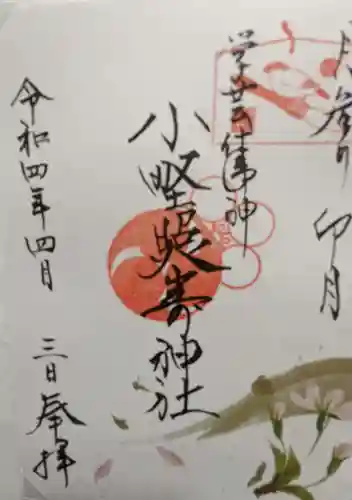 月参り 卯月
学芸神
小野照崎神社
令和四年四月 三日奉拝